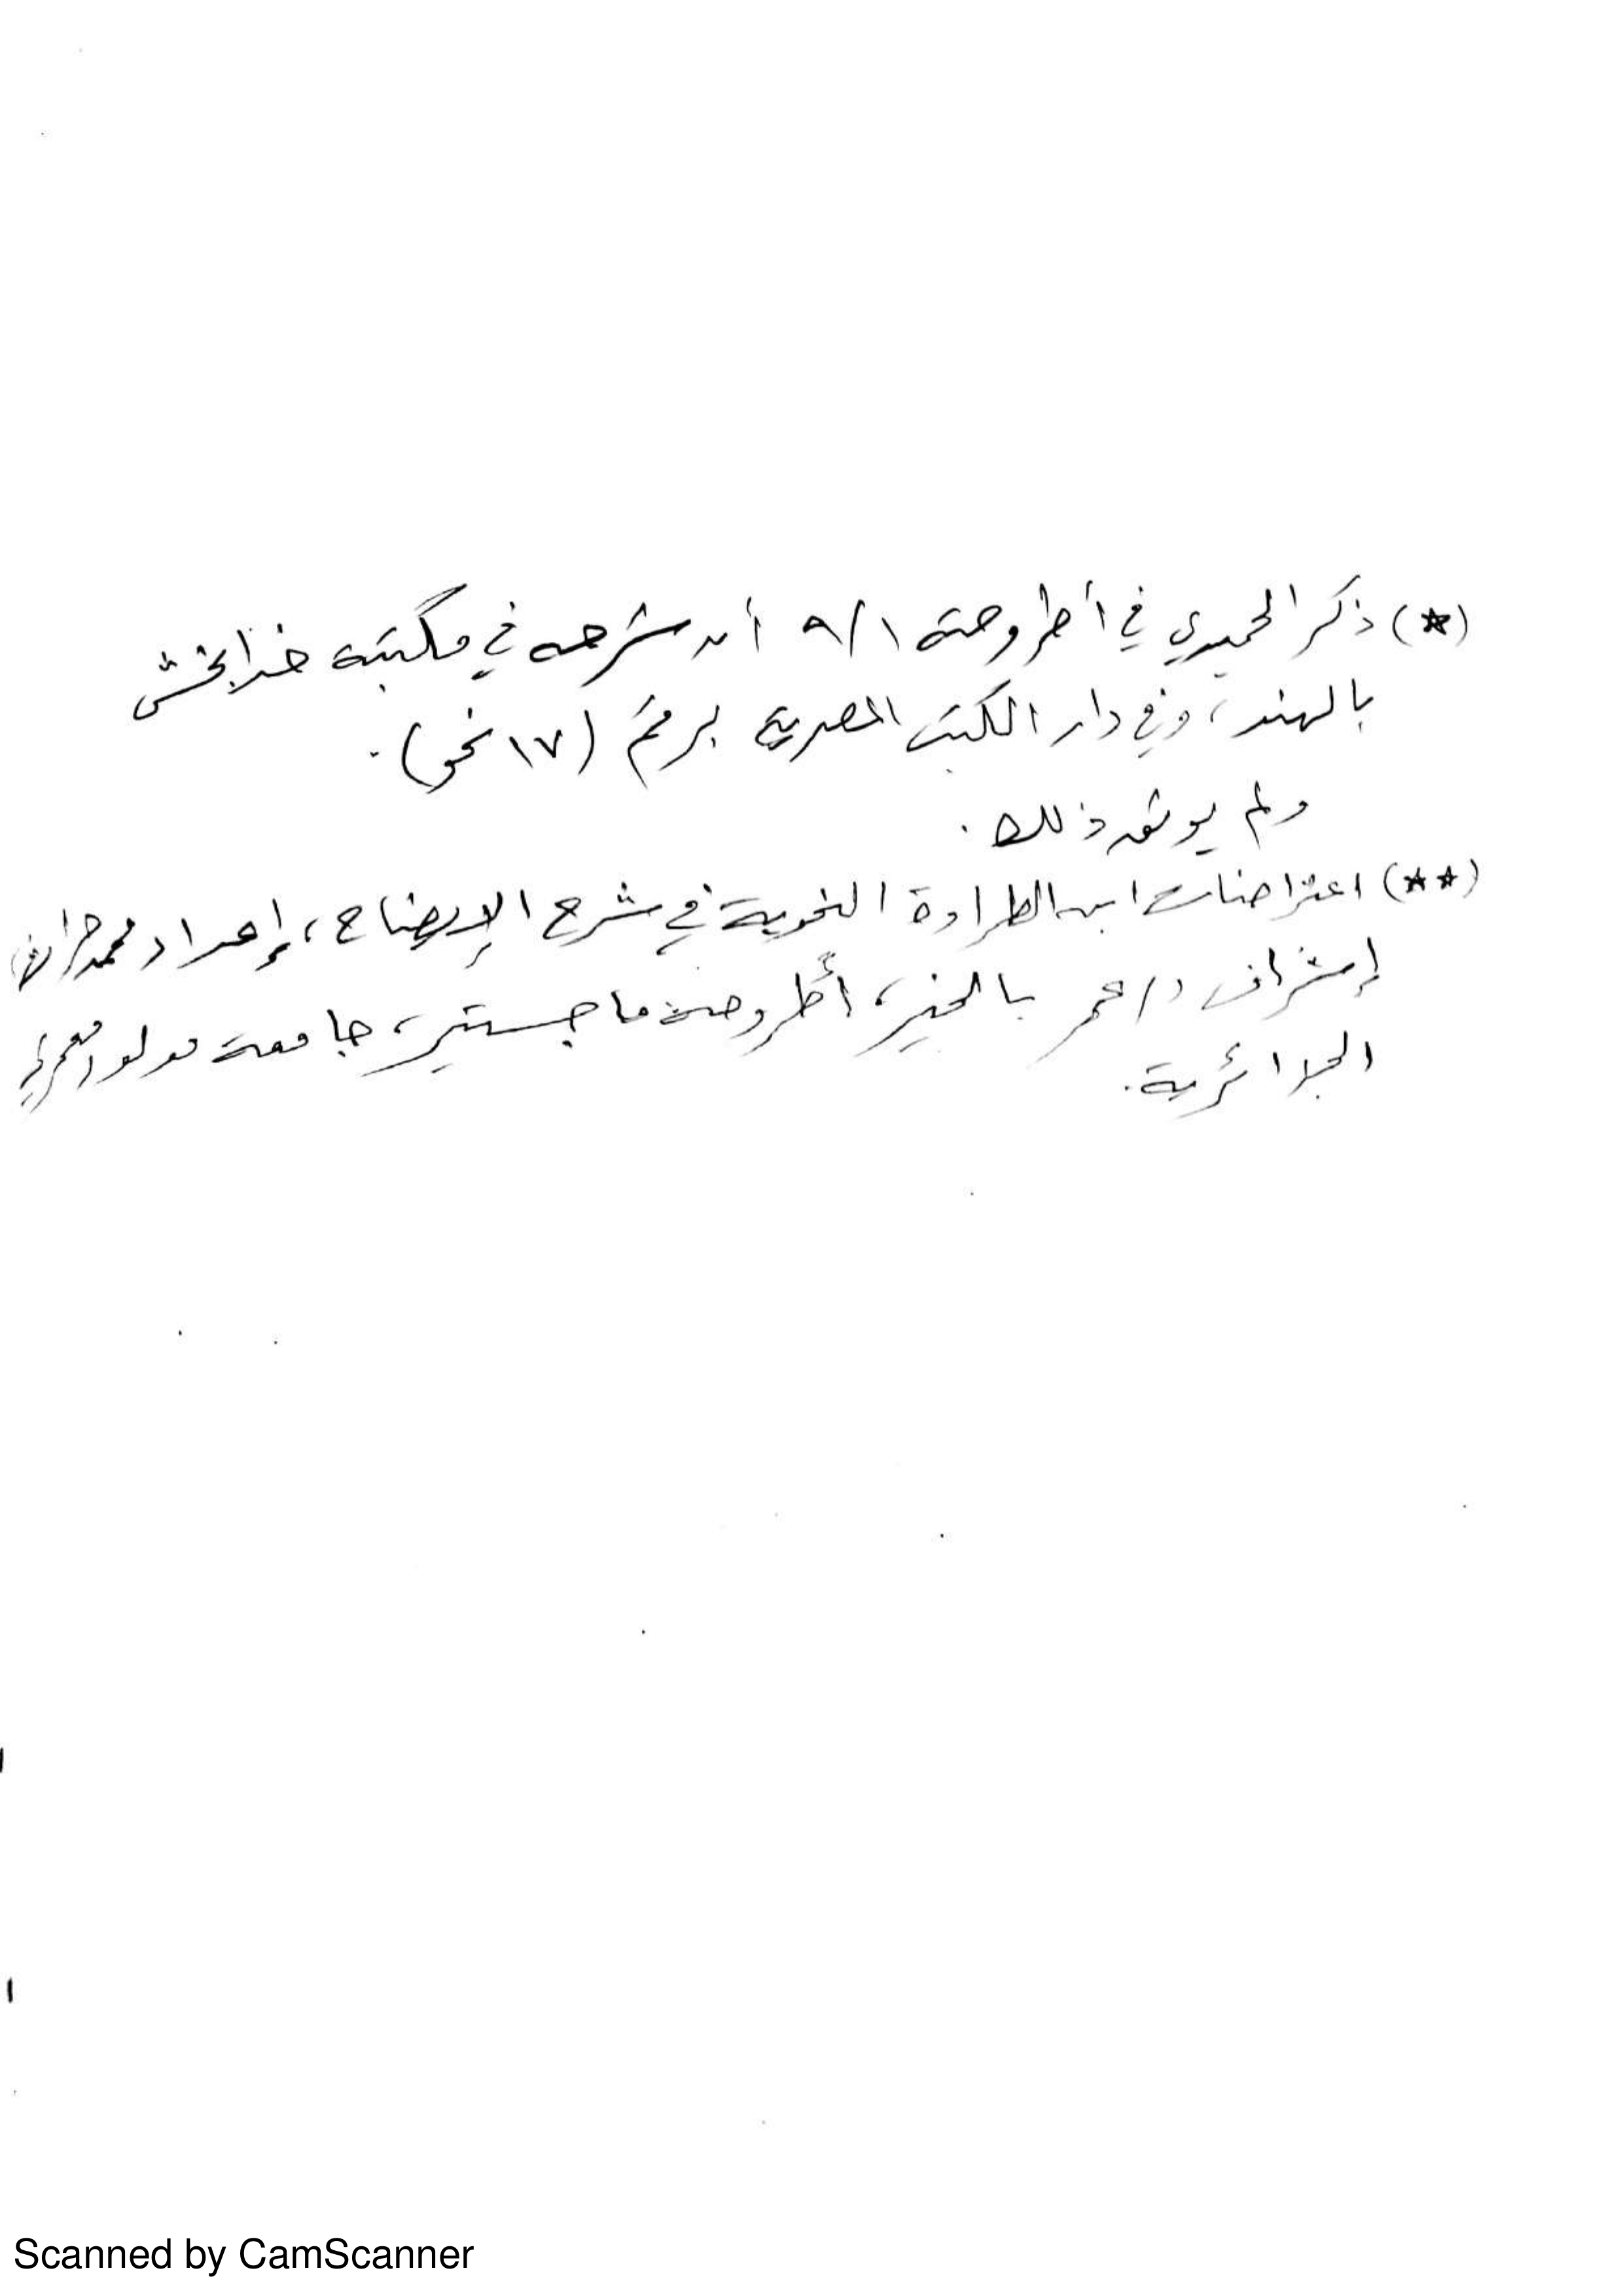 (*) ذكر الحميدي في أطروحته ٩/١ أن شرحه في مكتبة خدابخش
بالهند، وفي دار الكتب المصرية برقم (١٧ نحو).
ولم يوثق ذلك.
(**) اعتراضات ابن الطراوة النحوية في شرح الإيضاح، إعداد محمد
إشراف د/عمر بالخير، أطروحة ماجستير، جامعة مولود معمري
الجزائرية.
Scanned by CamScanner